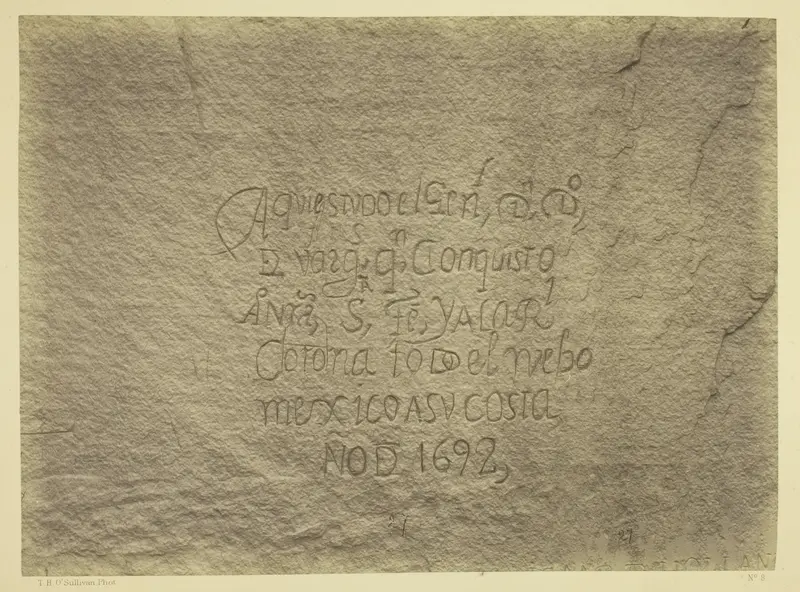 Aqui estuvo el Genl, Dn, Do,
D vargs, qn Conquisto
A Nra, S, Fe, YALA Rl
Corona todo el nuebo
mexico ASV costa
ÑO D 1692,
27
27
T. H. O'Sullivan, Phot.
No. 8